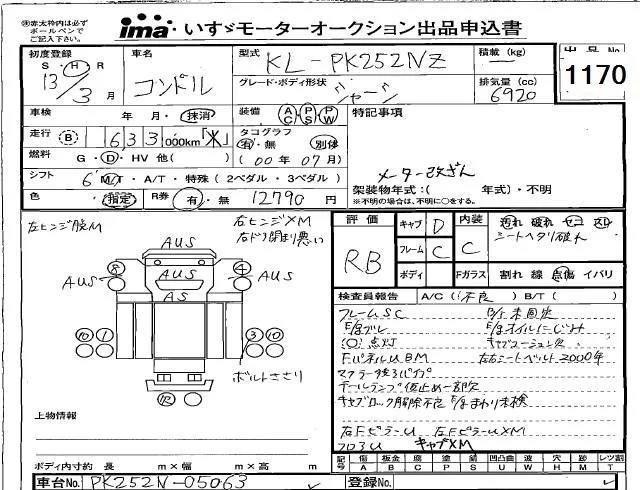 ※赤太枠内は必ず
ボールペンで
ご記入下さい。
ima いすゞモーターオークション出品申込書
初度登録 S・H・R 13/3月
車名 コンドル
型式 KL-PK252NZ
積載 (kg)
グレード・ボディ形状 シャーシ
排気量 (cc) 6920
出品No 1170
車検 年 月・抹消
装備 AC PS PW
特記事項
走行 B 1633 000km「米」
タコグラフ 有・無 別体
(00年07月)
燃料 G・D・HV 他( )
メーター改ざん
シフト 6 M/T・A/T・特殊(2ペダル・3ペダル)
架装物年式:( 年式)・不明
※不明の場合は、不明に○をする。
色 (指定) R券 有・無 12790円
左ヒンジ脱M 右ヒンジXM
右ドア閉まり悪い
AUS
8 4
AUS AUS
AUS
AS
10 10 3 10
ボルトささり
12
評価 RB
キャブ D
フレーム C
ボディ
内装 C
Fガラス
汚れ 破れ コゲ スレ
シートヘタリ破れ
割れ 線 点傷 イバリ
検査員報告 A/C(不良)B/T( )
フレームSC B/T未固定
E/gブレ E/gオイルにじみ
(O)点灯
FパネルUBM 左右シートベルト2000年
マフラー後ろパイプ
テールランプ仮止め一部欠
キャブロック解除不良 E/gまわり未検
右FピラーU 左FピラーUXM
フロアU キャブXM
上物情報
ボディ内寸約 長 m×幅 m×高 m
記号 傷A 板金B 腐C 塗P 錆S 凹凸曲U 波W 穴H 跡M レツ割T
車台No. PK252N-05063
登録No.